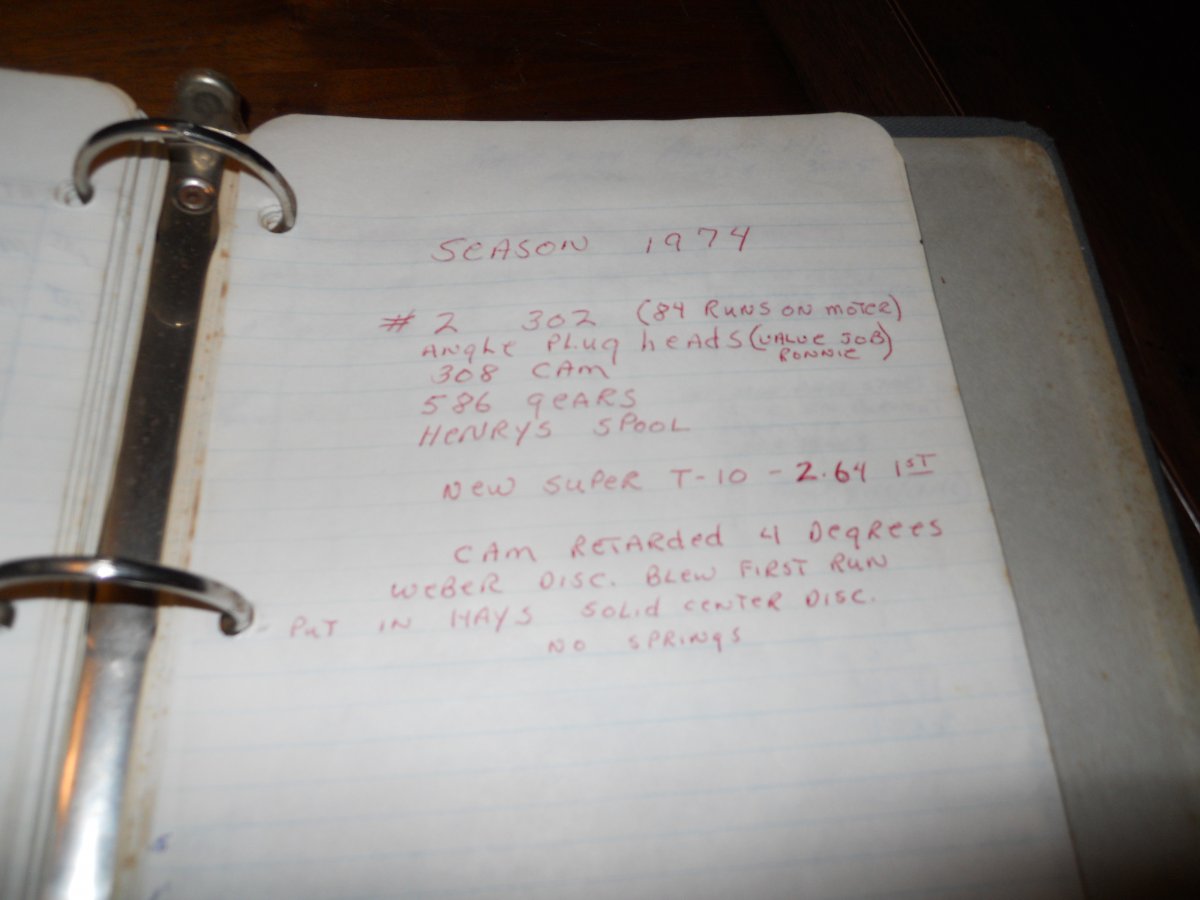 SEASON 1974
# 2 302 (84 RUNS ON MOTER)
ANGLE PLUG HEADS (VALUE JOB)
RONNIE
308 CAM
586 GEARS
HENRYS SPOOL
NEW SUPER T-10 - 2.64 1ST
CAM RETARDED 4 DEGREES
WEBER DISC. BLEW FIRST RUN
- PUT IN HAYS SOLID CENTER DISC.
NO SPRINGS